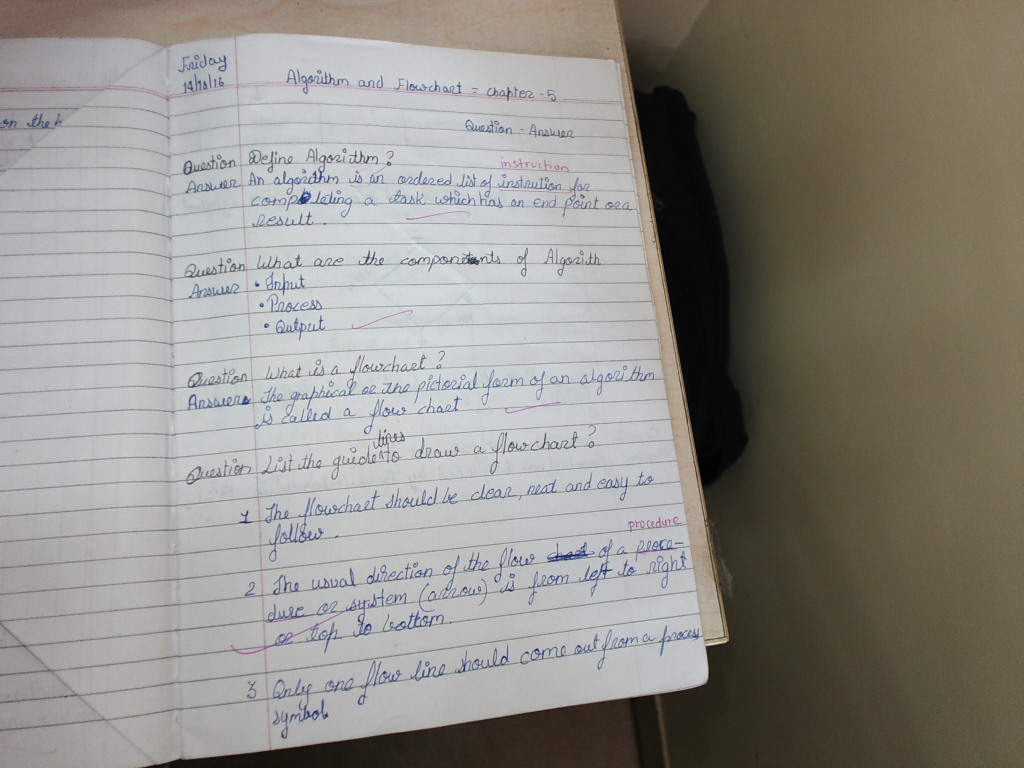 on the
Friday
14/10/16
Algorithm and Flowchart = chapter - 5
Question - Answer
Question Define Algorithm ?
instruction
Answer An algorithm is an ordered list of instrution for
completing a task which has an end point or a
result .
Question What are the components of Algorith
Answer • Input
• Process
• Output
Question What is a flowchart ?
Answer The graphical or the pictorial form of an algorithm
is called a flow chart
lines
Question List the guide to draw a flowchart ?
1 The flowchart should be clear, neat and easy to
follow .
procedure
2 The usual direction of the flow chart of a proce-
dure or system (arrow) is from left to right
or top to bottom.
3 Only one flow line should come out from a process
symbol